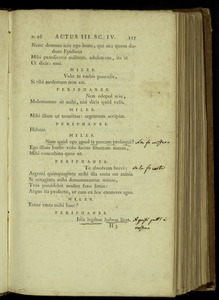 ACTUS III. SC. IV. 117
Nunc demum scio ego hunc, qui sit; quem dudum Epidicus
Mihi praedicavit militem, adulescens, ita fit
Ut dicis: emi.
MILES.
Volo te verbis pauculis,
Si tibi molestum non est.
PERIPHANES.
Non edepol scio,
Molestumne sit mihi, nisi dicis quid velis.
MILES.
Mihi illam ut tramittas: argentum accipias.
PERIPHANES.
Habeas.
MILES.
Nam quid ego apud te parcam proloqui?
Ego illam hodie volo facere libertam meam,
Mihi concubina quae sit.
PERIPHANES.
Te absolvam brevi:
Argenti quinquaginta mihi illa emta est minis.
Si sexaginta mihi denumerantur minae,
Tuas possidebit mulier faxo ferias:
Atque ita profecto, ut eam ex hoc exoneres agro.
MILES.
Estne emta mihi haec?
PERIPHANES.
His legibus habeas licet.
H 3